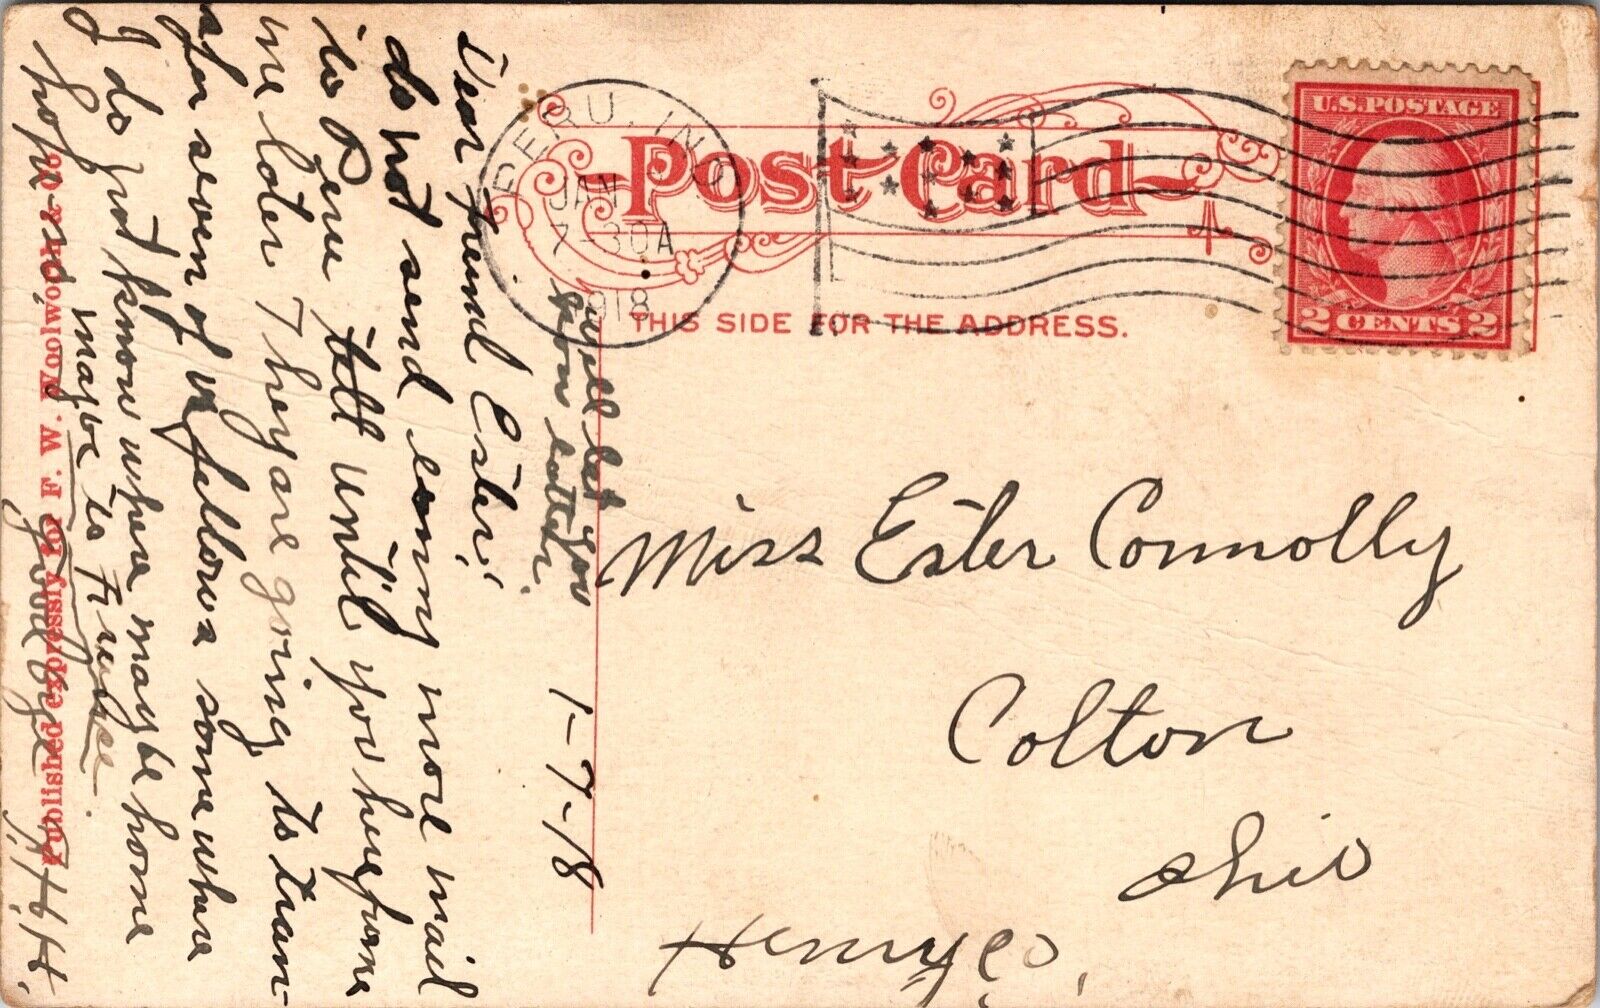 Post Card
THIS SIDE FOR THE ADDRESS.
U.S. POSTAGE
2 CENTS 2
PERU, IND
JAN
7-30A
1918
Miss Ester Connolly
Colton
Ohio
Henry Co.
1-7-18
Dear Friend Ester;
do not send eny more mail
to Peru till until you hear from
me later They are going to tran-
sfer seven of us fellows some where
I do not know where may be home
hope so and maybe to France.
good bye
H. H.
will let you
know later.
Published expressly for F. W. Woolworth & Co